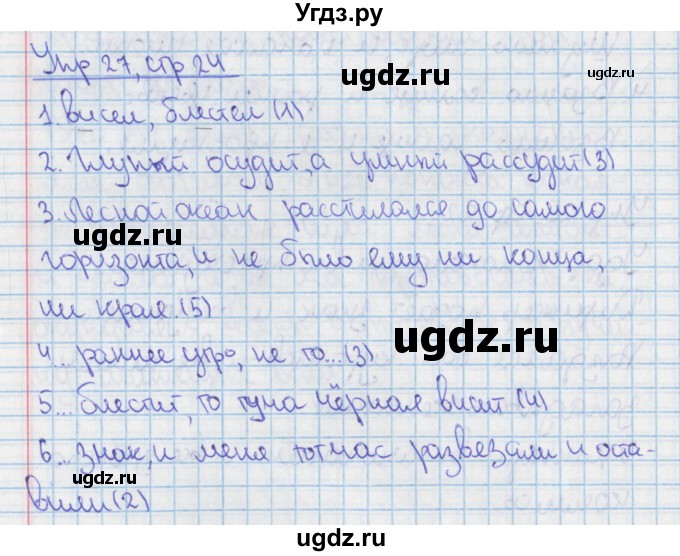 Угдз.ру
Упр 27, стр 24
ugdz.ru
1. висел, блестел (1)
2. Глупый осудит, а умный рассудит (3)
3. Лесной океан расстилался до самого
ugdz.ru
горизонта, и не было ему ни конца,
ни края. (5)
ugdz.ru
4... раннее утро, не то... (3)
5... блестит, то туча чёрная висит (4)
6... знак, и меня тотчас развязали и оста-
вили (2)
ugdz.ru
ugdz.ru
Угдз.ру